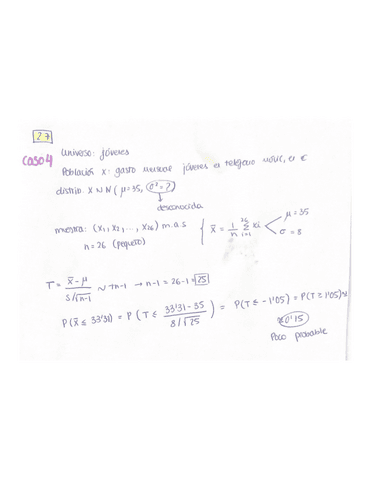 2.7
Caso 4
Universo: jóvenes
Población X: gasto mensual jóvenes en teléfono móvil, en €
distrib. X ~ N(μ=35, σ²=?)
desconocida
muestra: (X₁, X₂, ..., X₂₆) m.a.s
n=26 (pequeño)
x̄ = 1/n Σ_{i=1}^{26} xi
μ=35
σ=8
T = (x̄-μ)/(s/√(n-1)) ~ Tn-1 → n-1 = 26-1 = 25
P(x̄ ≤ 33'31) = P(T ≤ (33'31-35)/(8/√25)) = P(T ≤ -1'05) = P(T ≥ 1'05) ≈
≈ 0'15
Poco probable